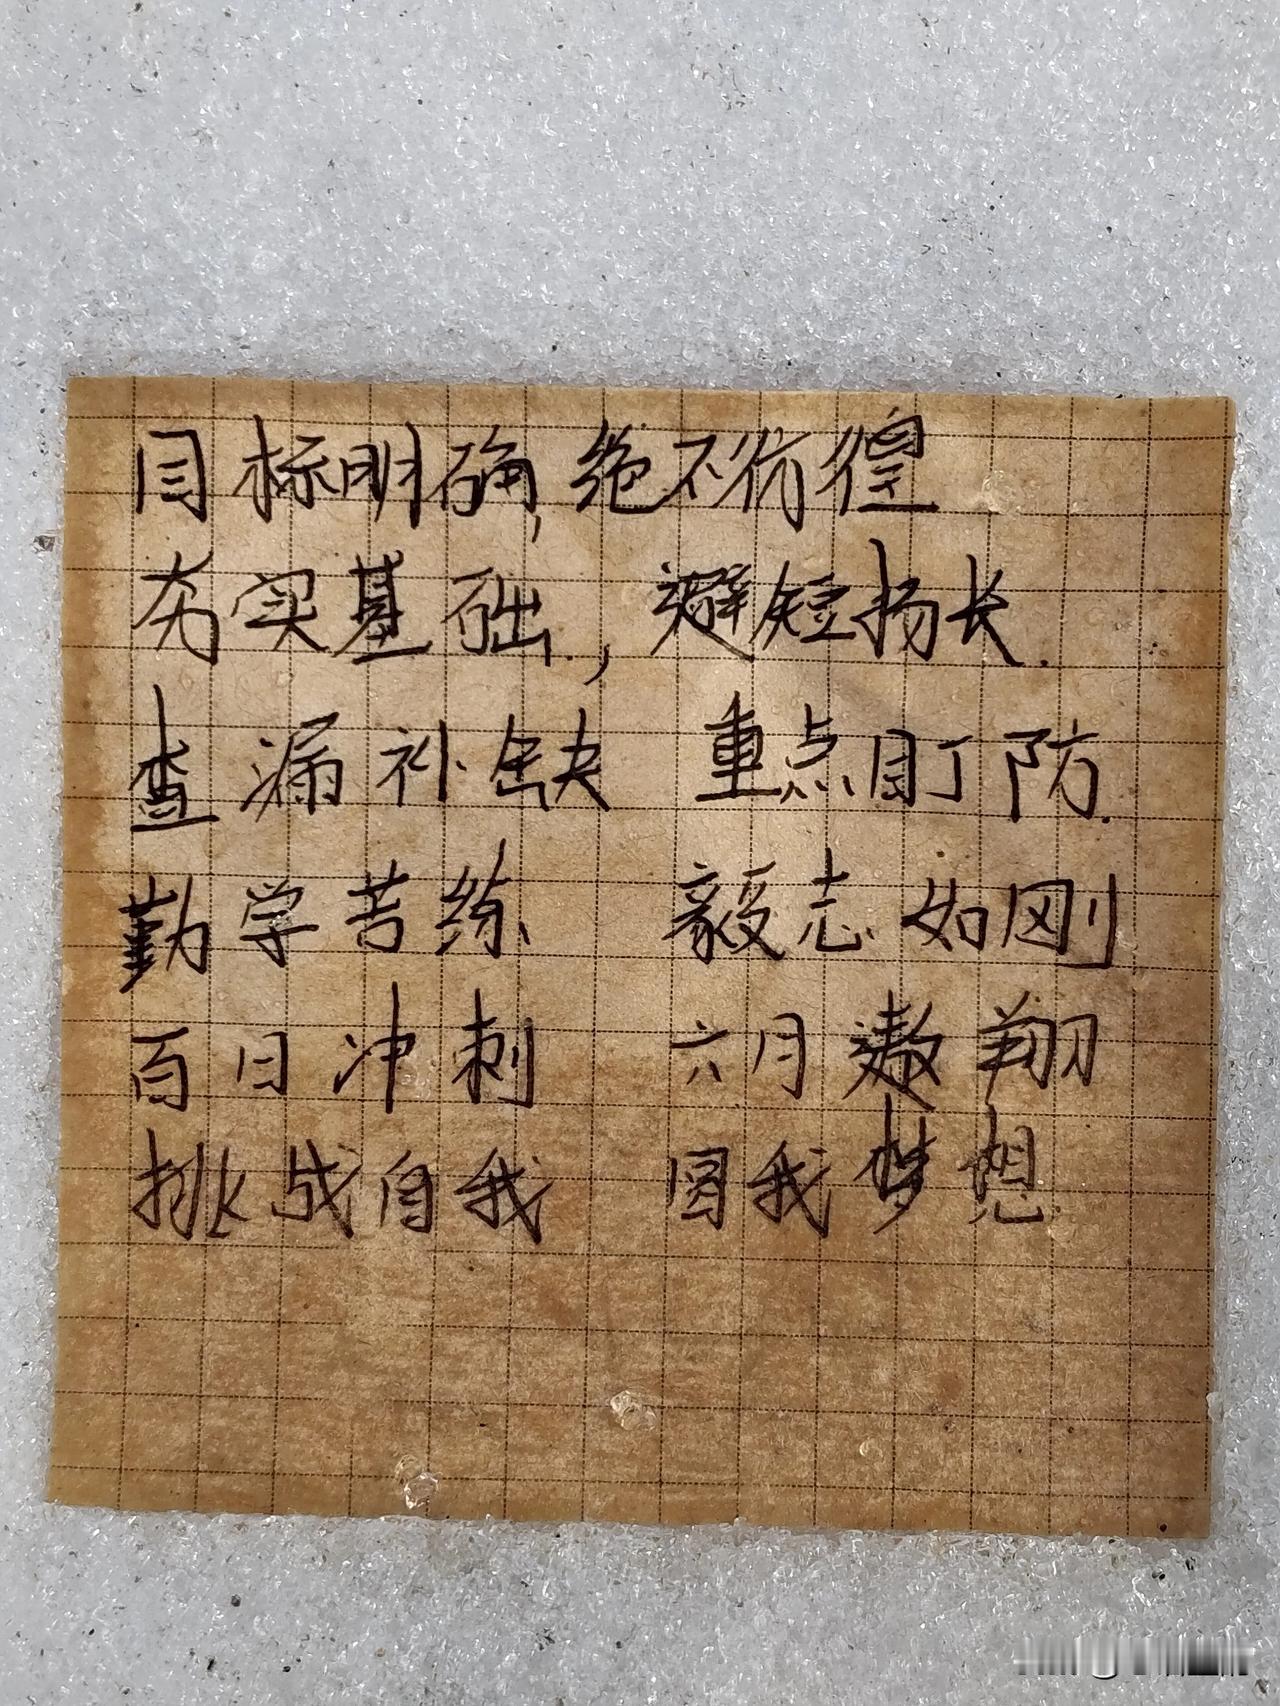 目标明确,绝不彷徨
夯实基础,避短扬长.
查漏补缺 重点盯防.
勤学苦练 毅志如刚
百日冲刺 六月遨翔
挑战自我 圆我梦想